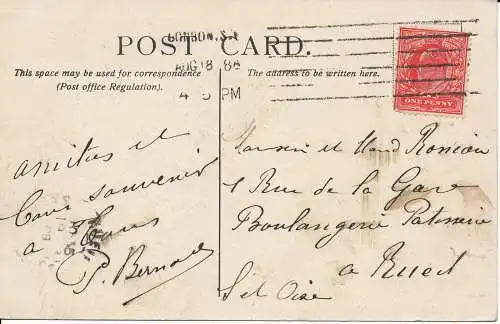 POST CARD.
LONDON, S.
AUG 18
4 PM
This space may be used for correspondence
(Post office Regulation).
The address to be written here.
ONE PENNY
amities et
bons souvenir
a
P. Bernard
et
1 Rue de la Gare
Boulangerie Patisserie
a Rueil
S et Oise